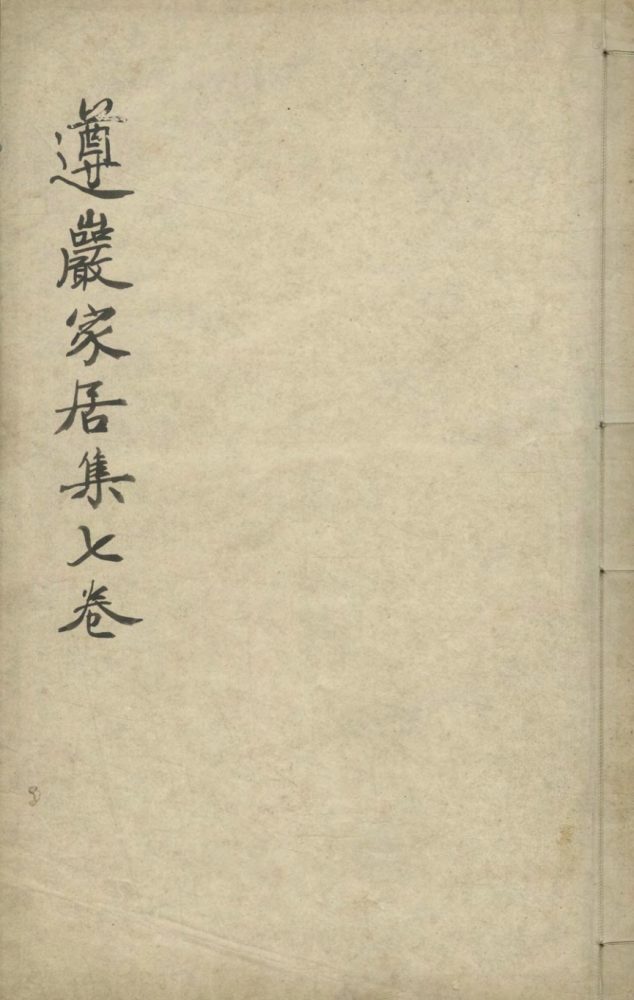 遵巖家居集七卷